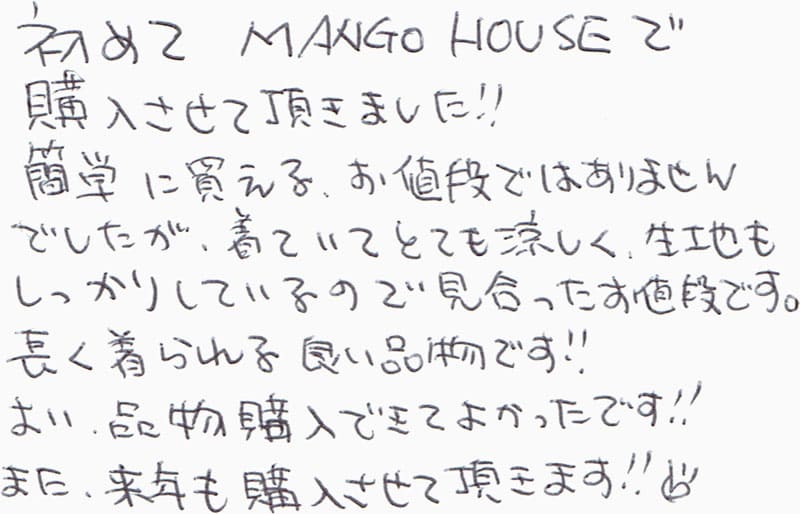 初めて MANGO HOUSEで
購入させて頂きました!!
簡単に買える、お値段ではありません
でしたが、着ていてとても涼しく、生地も
しっかりしているので見合ったお値段です。
長く着られる良い品物です!!
よい、品物購入できてよかったです!!
また、来年も購入させて頂きます!!